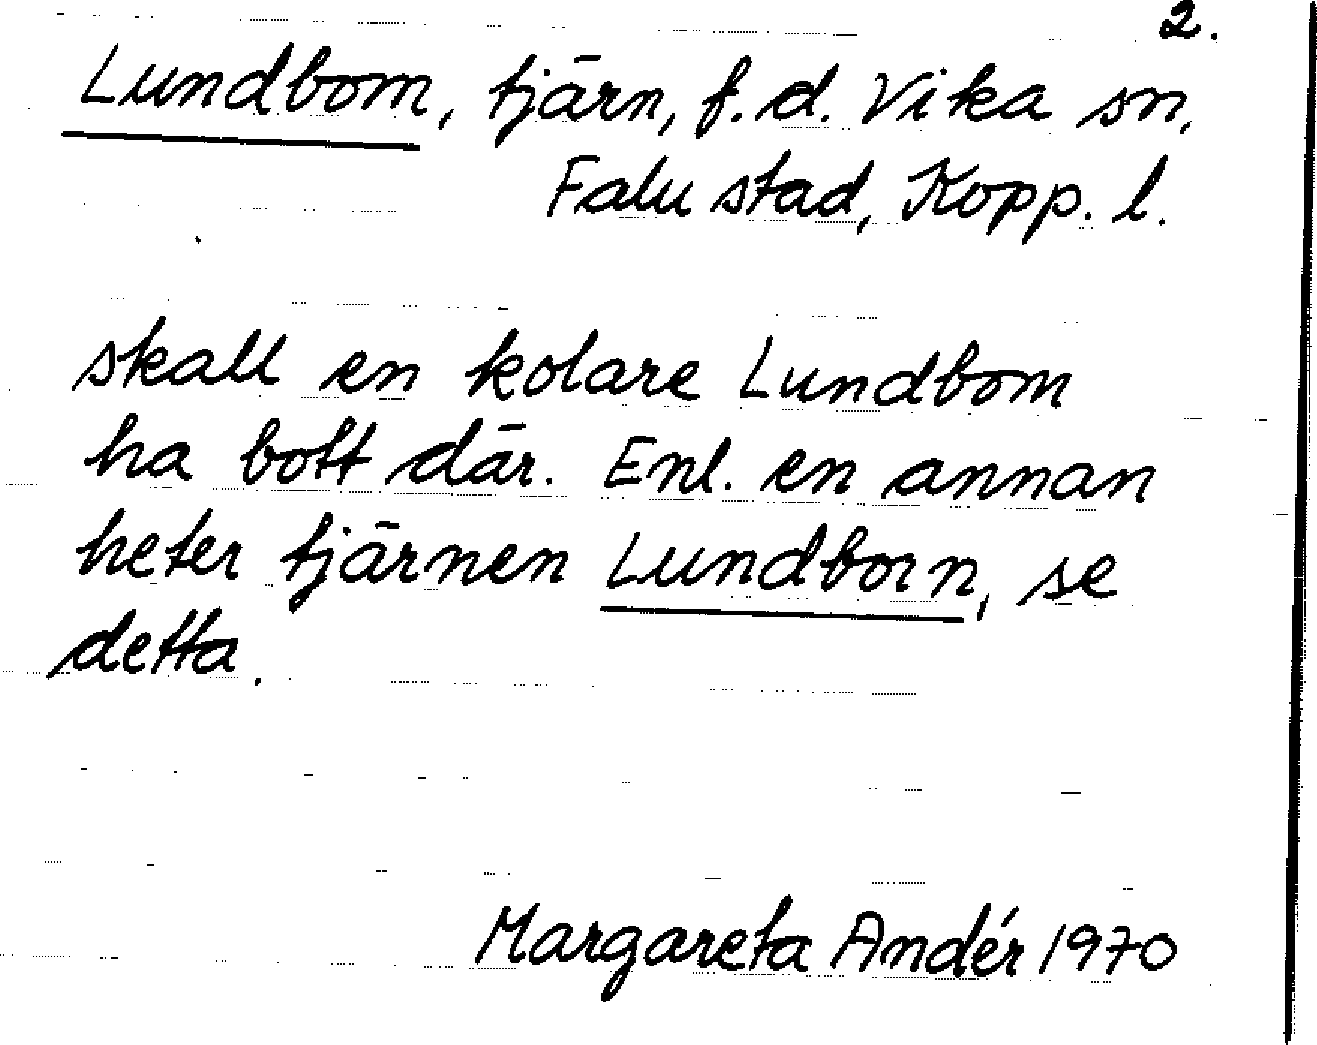 2.
Lundbom, tjärn, f.d. Vika sn,
Falu stad, Kopp. l.
skall en kolare Lundbom
ha bott där. Enl. en annan
heter tjärnen Lundborn, se
detta.
Margareta Andér 1970